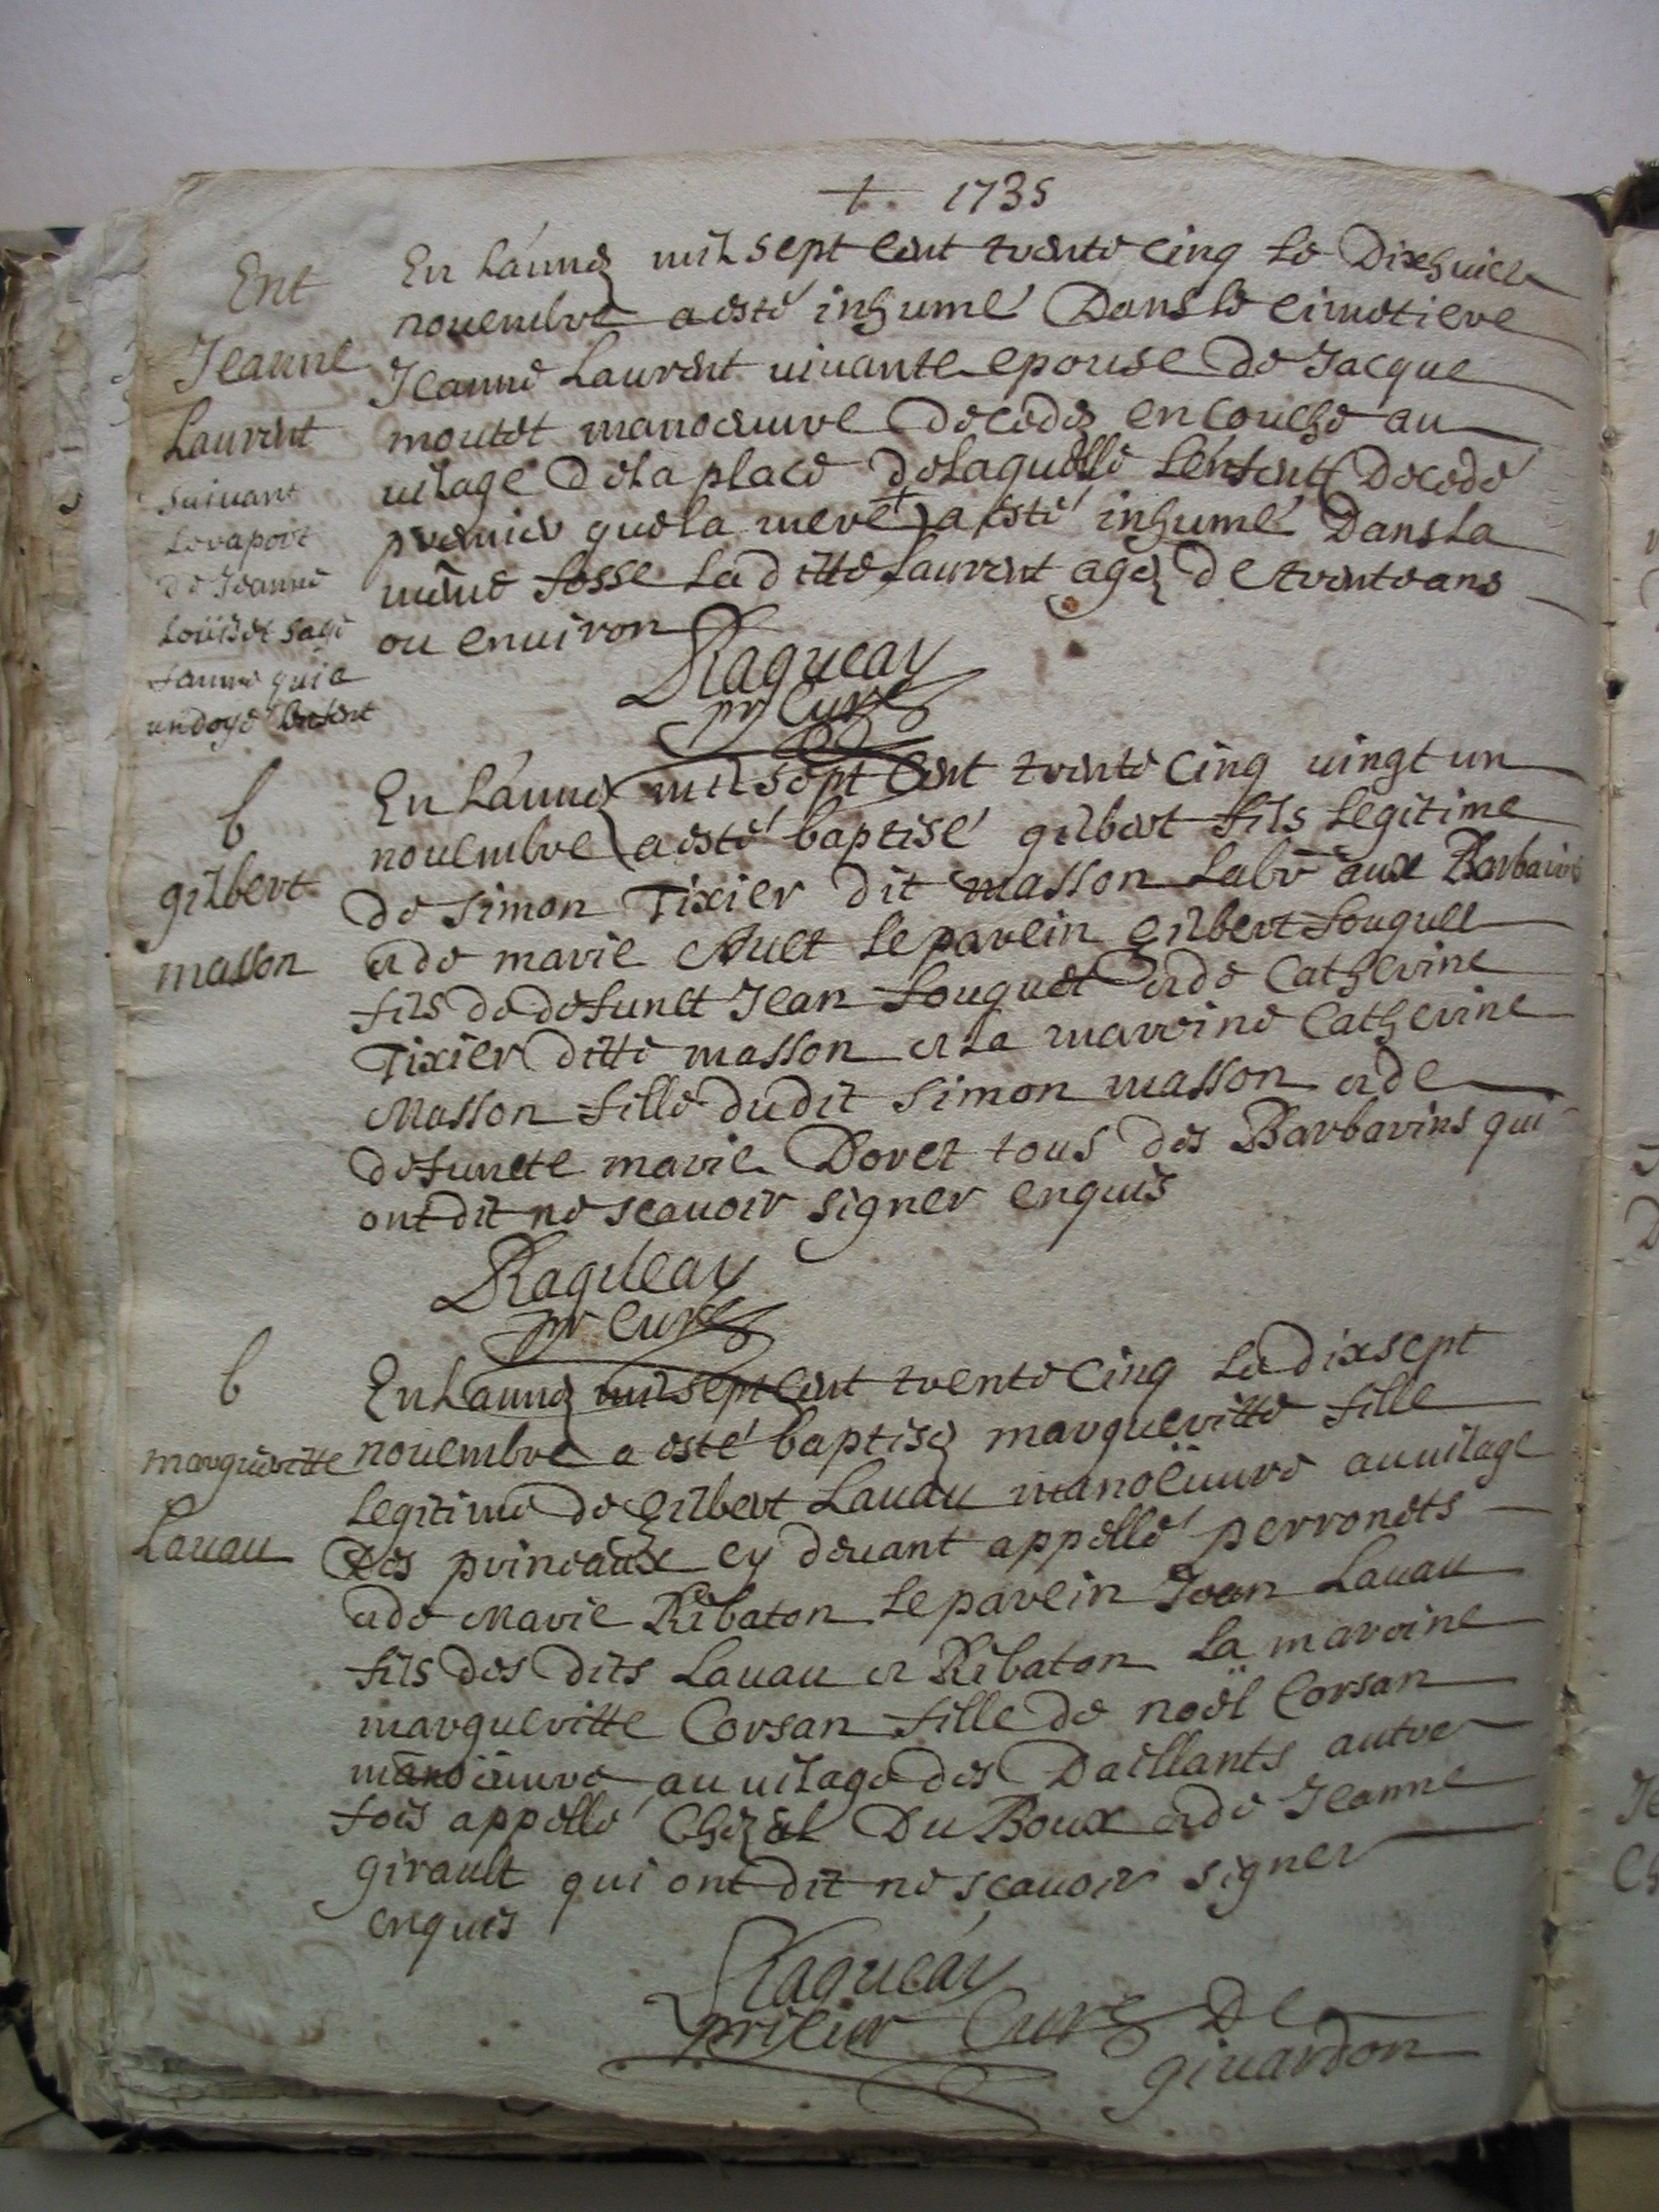 + 1735
Ent
Jeanne
Laurent
suivant
le raport
de Jeanne
Loüisot sage
famme qui a
undoyé lenfent
En Lánnéz mil sept cent trente cinq le Dixhuict
novembre a esté inhumé Dans le cimetiere
Jeanne Laurent vivante epouse de Jacque
moutet manoeuvre decedéz en couche au
vilage de la place de laquelle Lenfent Decede
premier que la mere a esté inhumé Dans la
même fosse la ditte Laurent agéz de trente ans
ou environ
Ragueau
pr Curé
b
gilbert
masson
En Lánnéz mil sept cent trente cinq vingt un
novembre a esté baptisé gilbert fils legitime
de Simon Tixier dit masson labr aux Barbarins
et de marie Auct le parein gilbert fouguet
fils de defunct Jean fouguet et de Catherine
Tixier ditte masson et la maroine Catherine
Masson fille dudit Simon masson et de
defuncte marie Doret tous des Barbarins qui
ont dit ne scavoir signer enquis
Ragueau
pr Curé
b
margueritte
Lavau
En Lannéz mil sept cent trente cinq le dixsept
novembre a esté baptiséz margueritte fille
legitime de gilbert Lavau manoëuvre au vilage
des prineaux cy devant appellé perronets
et de Marie Ribaton le parein Jean Lavau
fils des dits Lavau et Ribaton la maroine
margueritte Corsan fille de noël Corsan
manoëuvre au vilage des Daillants autre
fois appellé Chézal Du Boux et de Jeanne
girault qui ont dit ne sçavoir signer
enquis
Ragueau
prieur Curé De
givardon